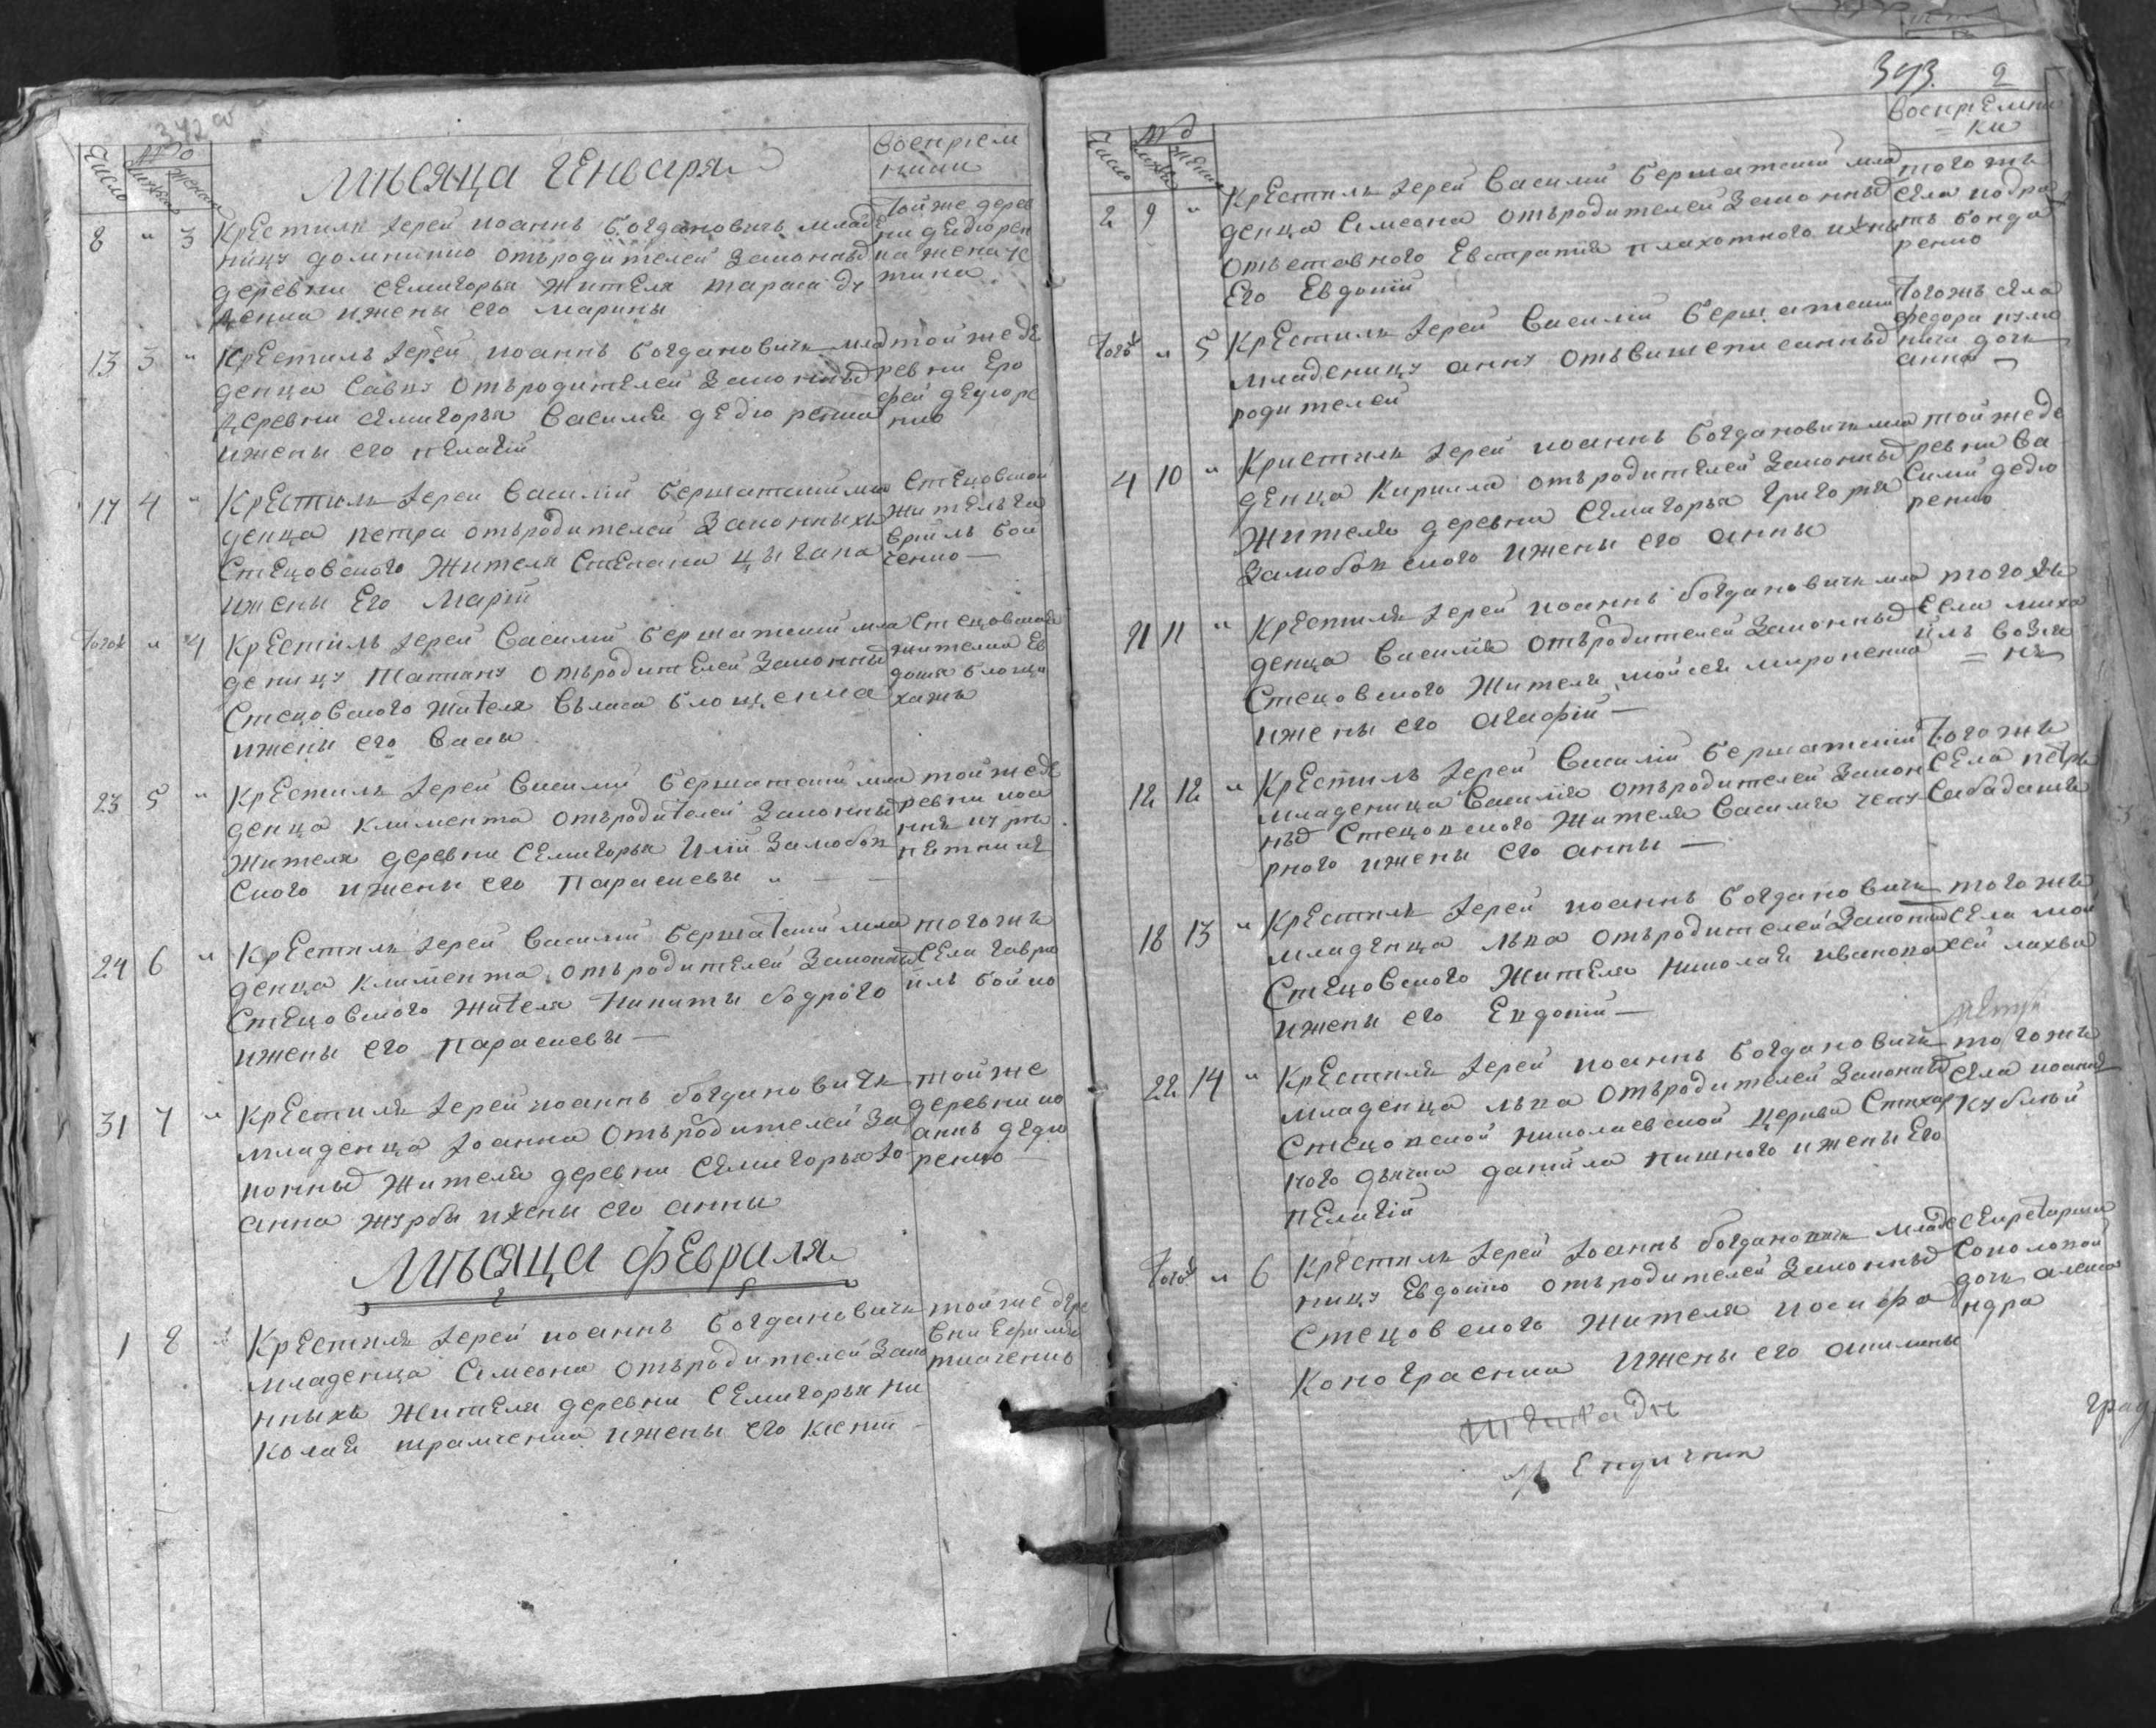 342
Число
№
мужска
женска
Мѣсяца Генваря
воспрiем
ники
8 " 3 Крестилъ Iерей Иоаннъ Богдановичъ младе
ницу Домникию отъ родителей законныхъ
деревни Семигорья жителя Тараса Дү
ценка и жены его Марины
Той же дерев
ни Дедюрен
ка жена Х
тина
13 3 " Крестилъ Iерей Иоаннъ Богдановичъ мла
денца Савву отъ родителей законныхъ
деревни Семигорья Василия Дедюренка
и жены его Пелагiи
той же де
ревни Еро
фей Дедюре
нко
17 4 " Крестилъ Iерей Василiй Бершатскiй мла
денца Петра отъ родителей законныхъ
Стецовского жителя Степана Цыгана
и жены Его Марiи
Стецовской
житель Га
врiилъ Бой
ченко —
Тогож " 4 Крестилъ Iерей Василiй Бершатскiй мла
деницу Татiану отъ родителей законны
Стецовского жителя Власа Блощенка
и жены его Вассы
Стецовского
жителя Ев
докiя Блощи
хажа
23 5 " Крестилъ Iерей Василiй Бершатскiй мла
денца Климента отъ родителей законны
жителя деревни Семигорья Илiи Залюбов
ского и жены его Параскевы " — —
той же де
ревни Иоа
ннъ
24 6 " Крестилъ Iерей Василiй Бершатскiй мла
денца Климента отъ родителей законныхъ
Стецовского жителя Никиты Бодрого
и жены его Параскевы —
того жъ
села Гаврi
илъ Бойко
31 7 " Крестилъ Iерей Иоаннъ Богдановичъ
младенца Iоанна отъ родителей за
конныхъ жителя деревни Семигорья Iо
анна Журбы и жены его Анны
той же
деревни Ио
аннъ Дедю
ренко —
Мѣсяца Февраля
1 8 " Крестилъ Iерей Иоаннъ Богдановичъ
младенца Симеона отъ родителей зако
нныхъ жителя деревни Семигорья Ни
колая и жены его Ксенiи —
той же дере
вни Ефимъ
Ткаченко
373. 2
Число
№
мужска
женска
воспрiемни
= ки
2 9 " Крестилъ Iерей Василiй Бершатскiй мла
денца Симеона отъ родителей законныхъ
отъставного Евстратiя Плахотного и жены
Его Евдокiи
того жъ
села Кодра
тъ Бонда
ренко
Тогожъ " 5 Крестилъ Iерей Василiй Бершатскiй
младеницу Анну отъ вишеписанныхъ
родителей
Того жъ села
Федора
дочь
Анна —
4 10 " Кристилъ Iерей Иоаннъ Богдановичъ мла
денца Кирилла отъ родителей законныхъ
жителя деревни Семигорья Григорiя
Залюбовского и жены его Анны
той же де
ревни Ва
силiй Дедю
ренко
11 11 " Крестилъ Iерей Иоаннъ Богдановичъ мла
денца Василiя отъ родителей законныхъ
Стецовского жителя Мойсея Мироненка
и жены его Агафiи —
того жъ
села Миха
илъ Возня
= къ
12 12 " Крестилъ Iерей Василiй Бершатскiй
младеница Василiя отъ родителей закон
ныхъ Стецовского жителя Василiя Чепу
рного и жены его Анны —
Того жъ
села Петръ
Сабадашъ
18 13 " Крестилъ Iерей Иоаннъ Богдановичъ
младенца Льва отъ родителей законныхъ
Стецовского жителя Николая Иванова
и жены его Евдокiи —
того жъ
села Мой
сей Лахва
22 14 " Крестилъ Iерей Иоаннъ Богдановичъ
младенца Льва отъ родителей законныхъ
Стецовской Николаевской церкви Стихар
ного дьячка Данiила Пишного и жены Его
Пелагiи
того жъ
села Иоаннъ
Кублый
Тогожъ " 6 Крестилъ Iерей Iоаннъ Богдановичъ младе
ницу Евдокiю отъ родителей законныхъ
Стецовского жителя Иосифа
Конограенка и жены его Акилины
Секретарша
Соколовой
дочь Алекса
ндра